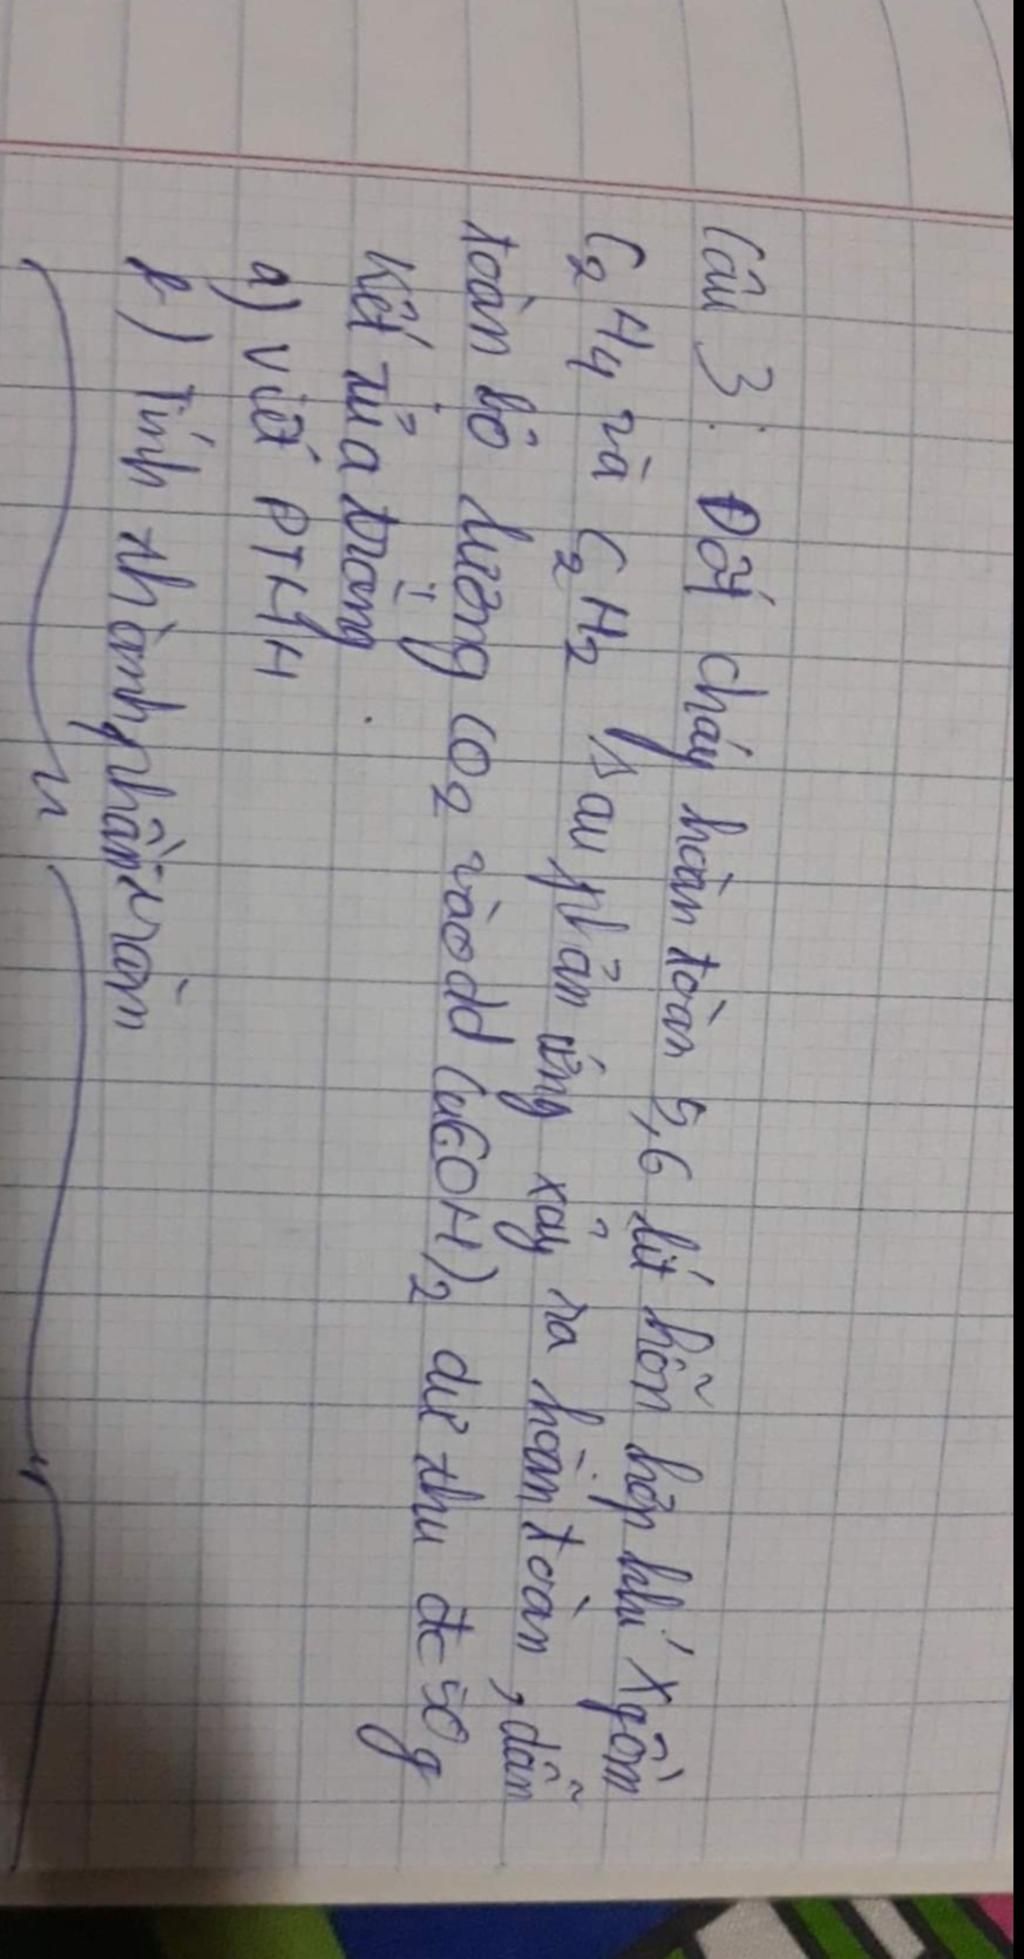 Câu 3: Đốt cháy hoàn toàn 5,6 lít hỗn hợp khí X gồm
C2H4 và C2H2 sau phản ứng xảy ra hoàn toàn, dẫn
toàn bộ lượng CO2 vào dd Ca(OH)2 dư thu đc 50g
kết tủa trắng.
a) Viết PTHH
b) Tính thành phần